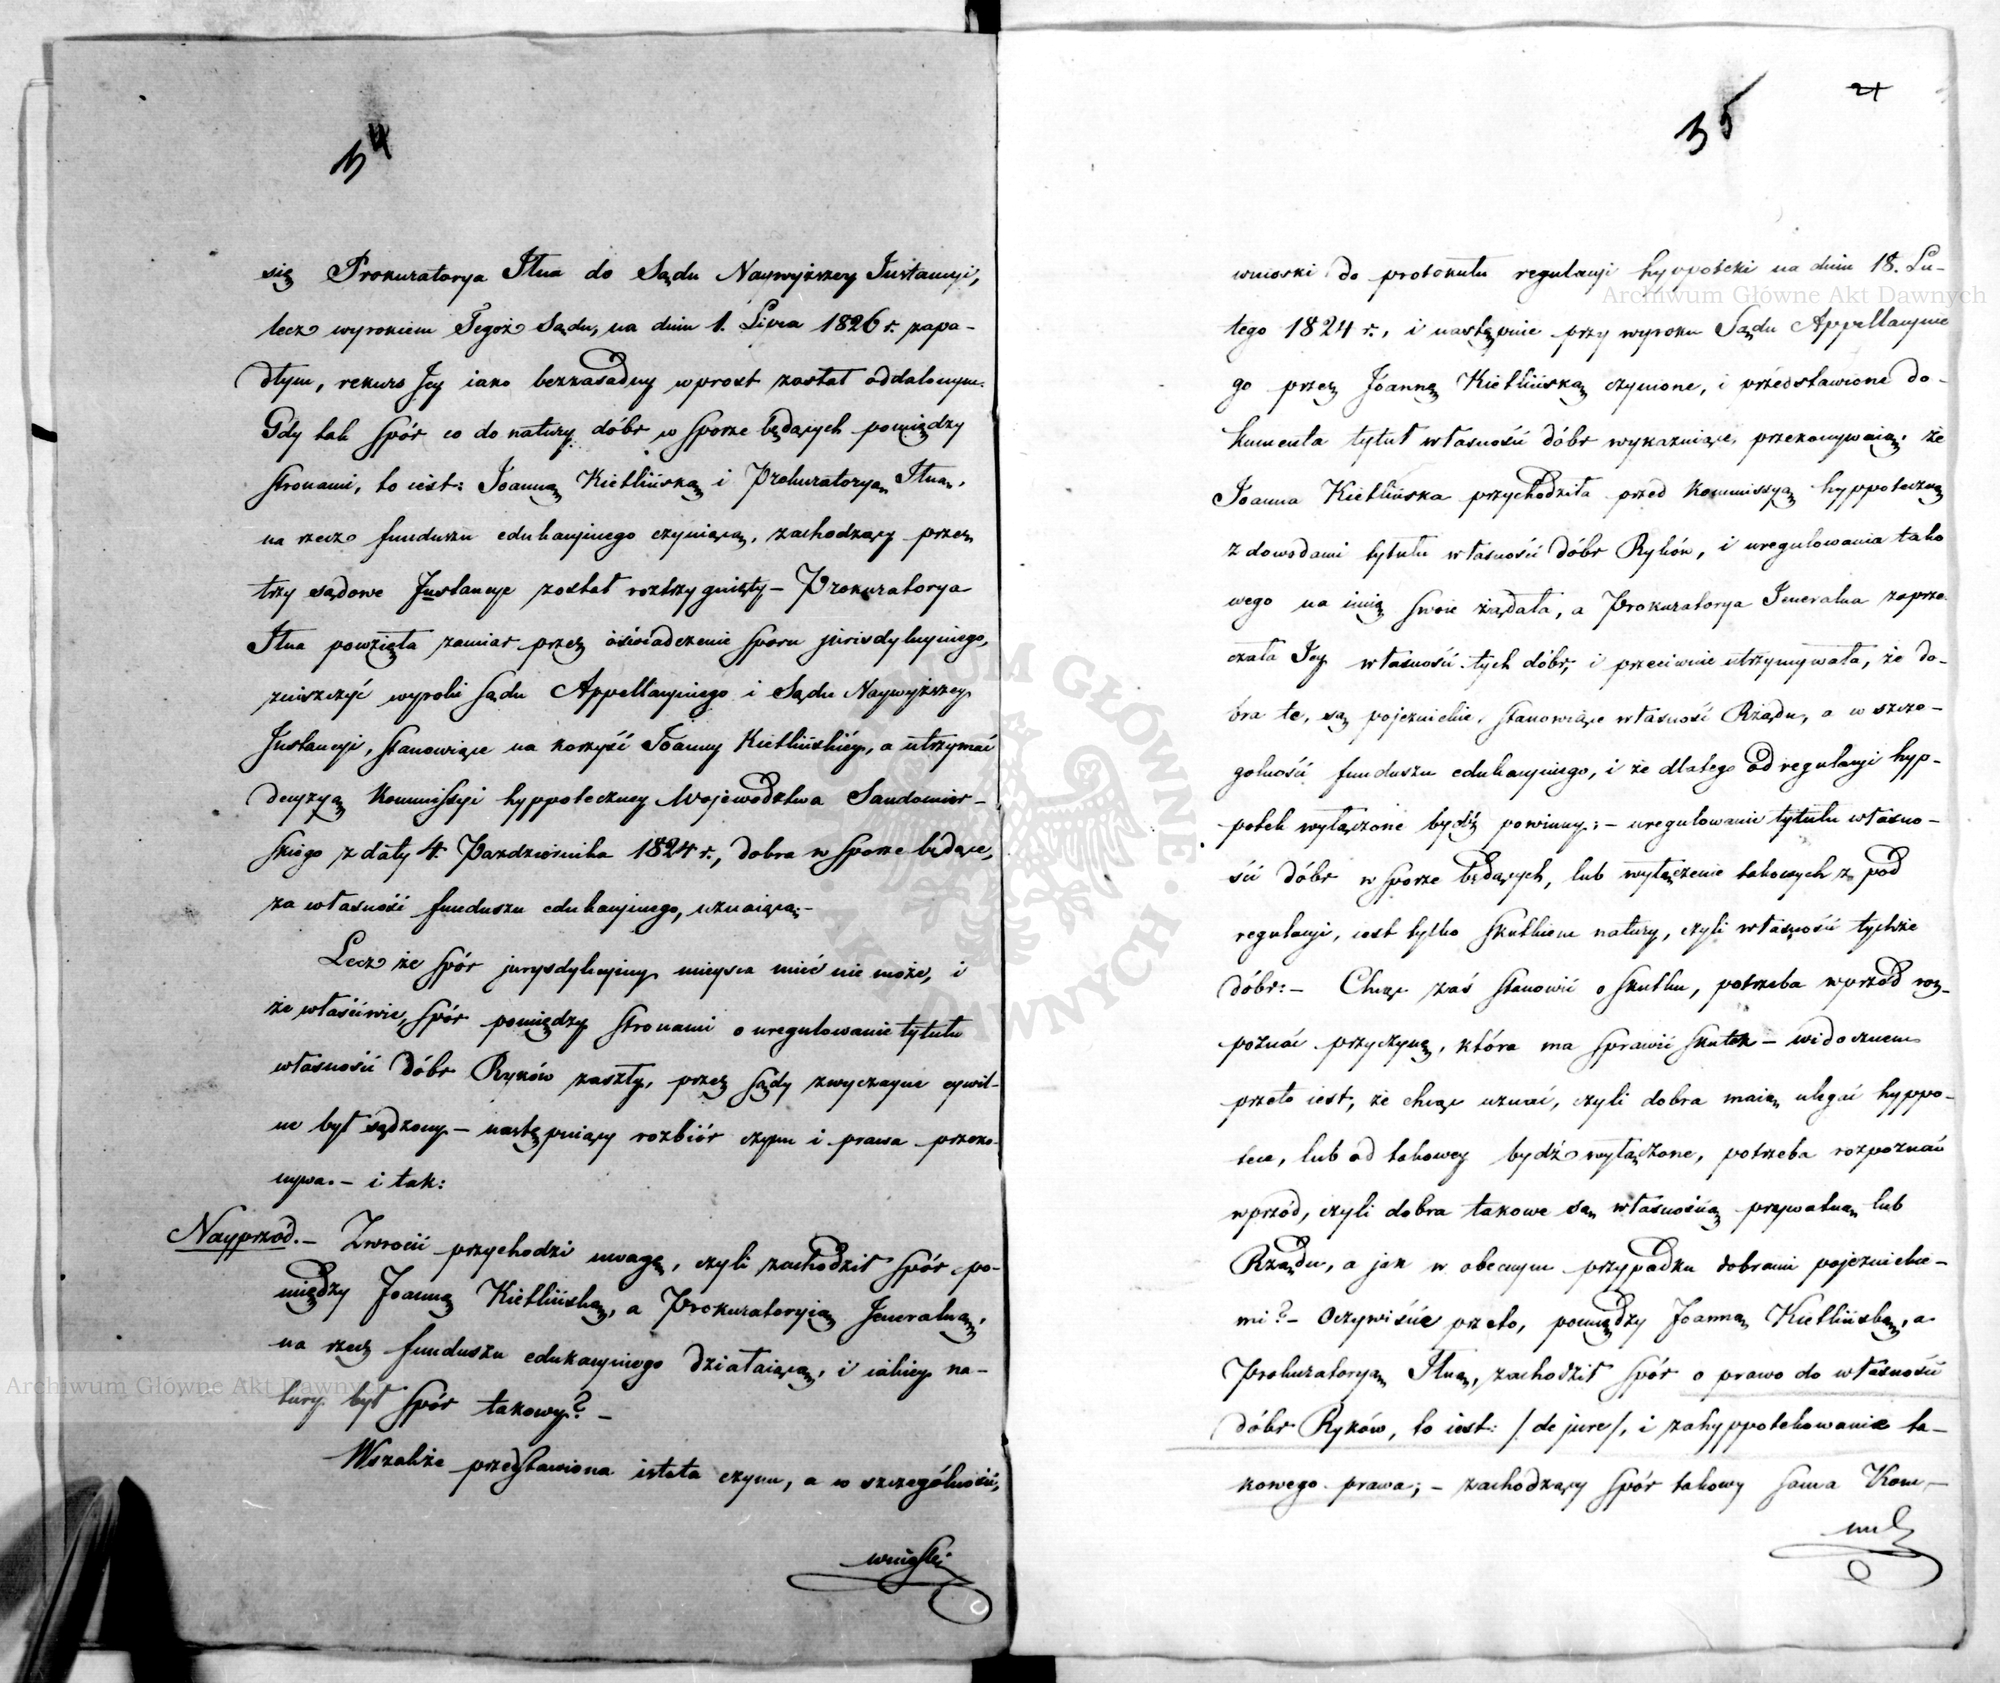 34
się Prokuratorya Jlna do Sądu Naywyższey Instancyi,
lecz wyrokiem Tegoż Sądu, na dniu 1. Lipca 1826 r. zapa-
dłym, rekurs Jey iako bezzasadny wprost został oddalonym.
Gdy tak spór co do natury dóbr w sporze będących pomiędzy
stronami, to iest: Joanną Kietlińską i Prokuratoryą Jlną,
na rzecz funduszu edukacyinego czyniącą, zachodzący przez
trzy sądowe Instancye został roztrzygnięty – Prokuratorya
Jlna powzięła zamiar przez oświadczenie sporu jurisdykcyinego,
zniszczyć wyroki Sądu Appellacyinego i Sądu Naywyższey
Instancyi, stanowiące na korzyść Joanny Kietlińskiéy, a utrzymać
decyzyą Kommissyi hyppoteczney Województwa Sandomir-
skiego z daty 4. Pazdziernika 1824 r., dobra w sporze będące,
za własność funduszu edukacyinego, uznaiącą. –
Lecz że spór jurysdykcyiny mieysca mieć nie może, i
że właściwie, spór pomiędzy stronami o uregulowanie tytułu
własności dóbr Ryków zaszły, przez Sądy zwyczayne cywil-
ne był sądzony – następuiący rozbiór czynu i prawa przeko-
nywa. – i tak:
Nayprzód. – Zwrócić przychodzi uwagę, czyli zachodził spór po-
między Joanną Kietlińską, a Prokuratoryią Jeneralną,
na rzecz funduszu edukacyinego działaiącą, i iakiey na-
tury był spór takowy? –
Wszakże przedstawiona istota czynu, a w szczególności,
wnioski
35
21
wnioski do protokułu regulacyi hyppoteki na dniu 18. Lu-
tego 1824 r., i następnie przy wyroku Sądu Appellacyine
go przez Joannę Kietlińską czynione, i przedstawione do-
kumenta tytuł własności dóbr wykazuiące, przekonywaią, że
Joanna Kietlińska przychodziła przed Kommissyą hyppoteczną
z dowodami tytułu własności dóbr Ryków, i uregulowania tako
wego na imię swoie żądała, a Prokuratorya Jeneralna zaprze
czała Jey własności tych dóbr, i przeciwnie utrzymywała, że do-
bra te, są pojezuickie, stanowiące własność Rządu, a w szcze-
gólności funduszu edukacyinego, i że dlatego od regulacyi hyp-
potek wyłączone bydź powinny; – uregulowanie tytułu własno-
ści dóbr w sporze będących, lub wyłączenie takowych z pod
regulacyi, iest tylko skutkiem natury, czyli własności tychże
dóbr: – Chcąc zaś stanowić o skutku, potrzeba wprzód roz-
poznać przyczynę, która ma sprawić skutek – widocznem
przeto iest, że chcąc uznać, czyli dobra maią ulegać hyppo-
tece, lub od takowey bydź wyłączone, potrzeba rozpoznać
wprzód, czyli dobra takowe są własnością prywatną lub
Rządu, a jak w obecnym przypadku dobrami pojezuickie-
mi? – Oczywiście przeto, pomiędzy Joanną Kietlińską, a
Prokuratoryą Jlną, zachodził spór o prawo do własności
dóbr Ryków, to iest: /de jure/, i zahyppotekowanie ta-
kowego prawa; – zachodzący spór takowy sama Kom-
Archiwum Główne Akt Dawnych
Archiwum Główne Akt Dawnych
ARCHIWUM GŁÓWNE AKT DAWNYCH